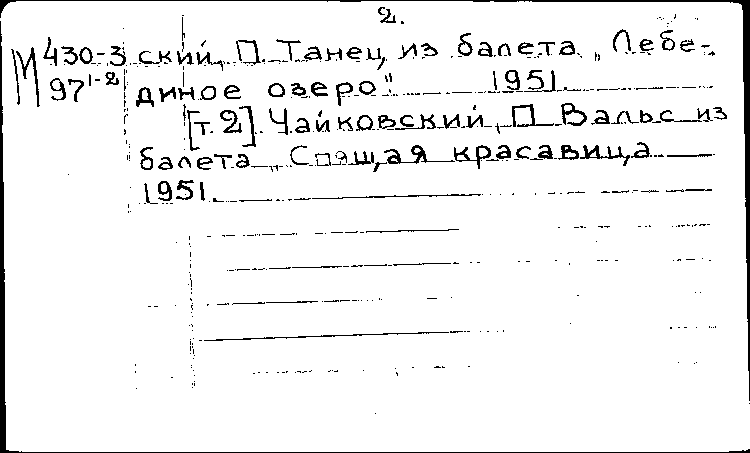 2.
М 430-3 ский, П. Танец из балета „Лебе-
97 1-2 диное озеро". 1951.
[т. 2]. Чайковский, П Вальс из
балета „Спящая красавица
1951.